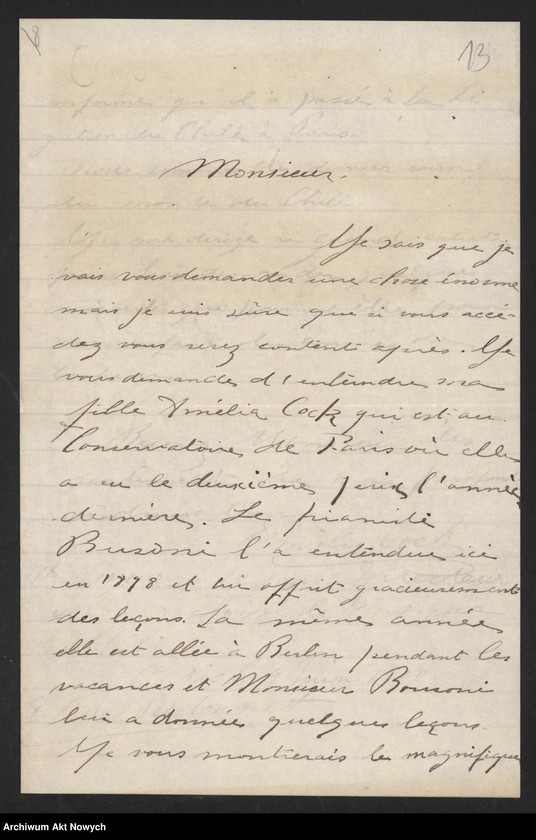 8
13
Monsieur.
Je sais que je
vais vous demander une chose énorme
mais je suis sûre que si vous accé-
dez vous serez content après. Je
vous demande d'enteindre ma
fille Amélia Cock qui est au
Conservatoire de Paris où elle
a eu le deuxième prix l'année
dernière. Le pianiste
Busoni l'a entendue ici
en 1898 et lui offrit gracieusement
des leçons. La même année
elle est allée à Berlin pendant les
vacances et Monsieur Bousoni
lui a donnée quelques leçons.
Je vous montrerais le magnifique
Archiwum Akt Nowych